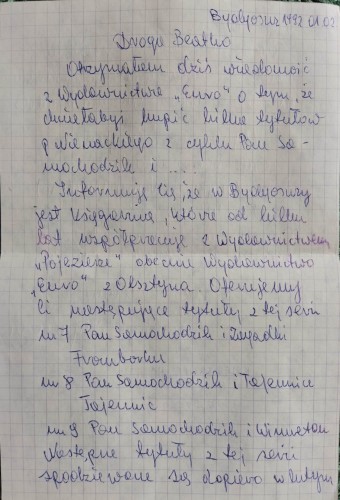 Bydgoszcz 1992.01.02
Droga Beatko
Otrzymałam dziś wiadomość
z Wydawnictwa "Euro" o tym, że
chciałabyś kupić kilka tytułów
p. Nienackiego z cyklu Pan Sa-
mochodzik i .....
Informuję Cię, że w Bydgoszczy
jest Księgarnia, która od kilku
lat współpracuje z Wydawnictwem
"Pojezierze" obecnie Wydawnictwo
"Euro" z Olsztyna. Oferujemy
Ci następujące tytuły z tej serii
nr 7 Pan Samochodzik i Zagadki
Fromborka
nr 8 Pan Samochodzik i Tajemnica
Tajemnic
nr 9 Pan Samochodzik i Winnetou
Następne tytuły z tej serii
spodziewane są dopiero w lutym